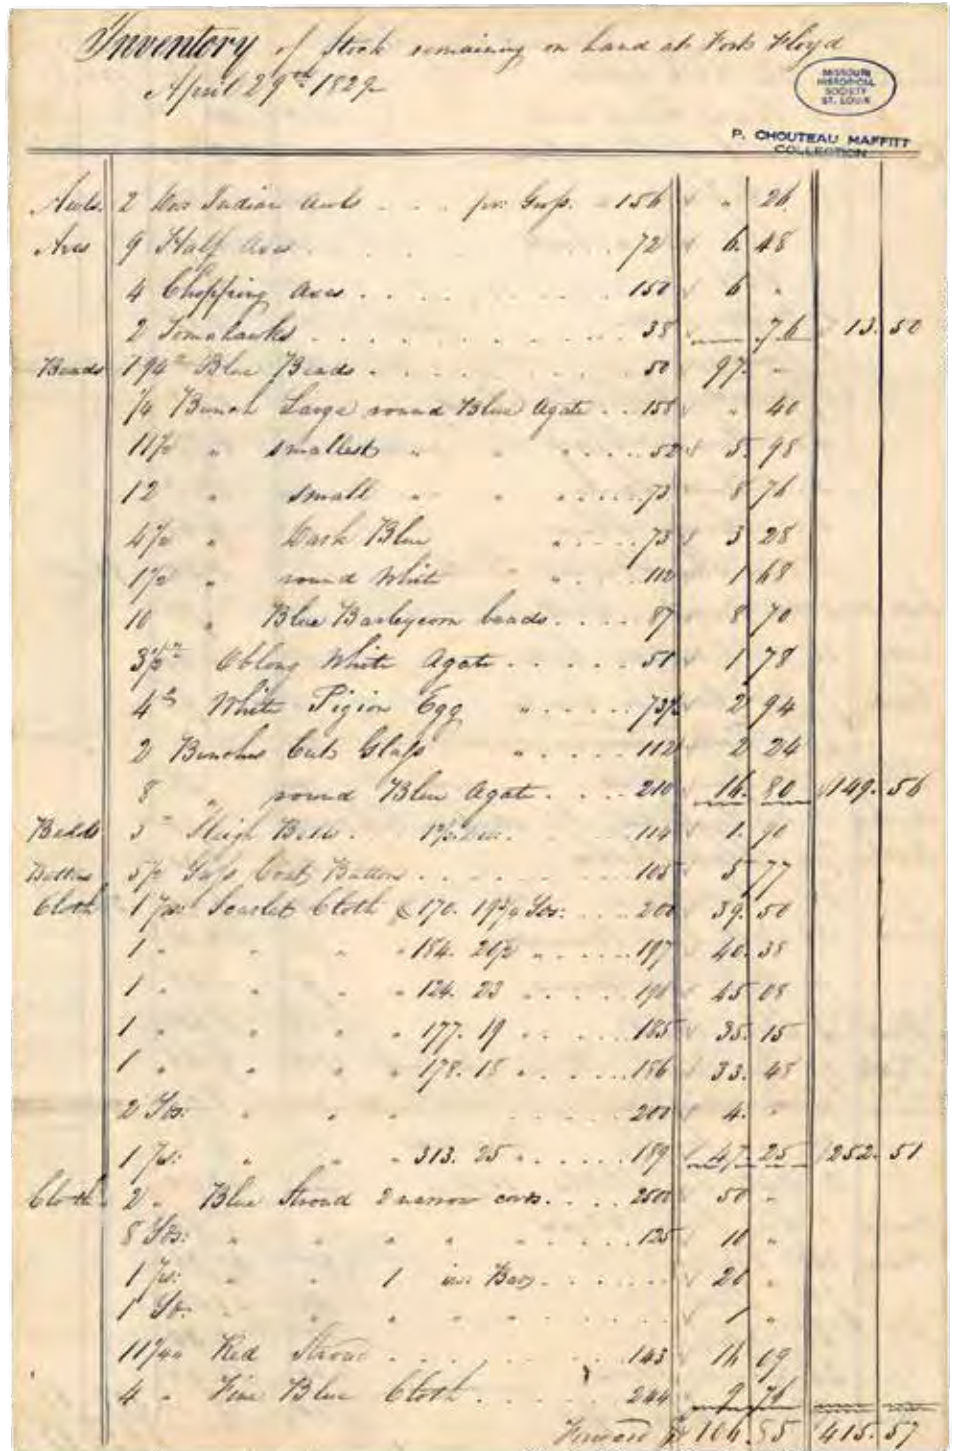 Inventory of Stock remaining on hand at Fort Floyd
April 29th 1829
MISSOURI
HISTORICAL
SOCIETY
ST. LOUIS
P. CHOUTEAU MAFFITT
COLLECTION
Awls. 2 Doz Indian Awls . . . pr: Groſs. 156 " 26
Axes 9 Half Axes . 72 6. 48
4 Chopping Axes . . . 150 6 "
2 Tomahawks . . . 38 76 13. 50
Beads 194 Blue Beads . . . 50 97. "
1/4 Bunch Large round Blue Agate . . 158 " 40
11½ " smallest " " . . . . 52 5. 98
12 " small " " " . . . . 73 8 76
4½ " Dark Blue " . . . . 73 3 28
1½ " round White " " . . 112 1 68
10 " Blue Barleycorn beads . . . . 87 8 70
3½ Oblong White Agate . . . . 51 1 78
4 White Pigion Egg " . . . . 73½ 2 94
2 Bunches Cut Glaſs " . . . . 112 2 24
8 " round Blue Agate . . . 210 16. 80 149. 56
Bells 3 Sleigh Bells . 114 1. 90
Buttons 5½ Groſs Coat Buttons . . . . 105 5 77
Cloth 1 ps: Scarlet Cloth 170. 19¾ Yds: . . . 200 39. 50
1 " " " " 184. 20½ " . . . . 197 40. 38
1 " " " " 124. 23 . . . . 196 45 08
1 " " " " 177. 19 . . . . 185 35. 15
1 " " " " 178. 18 " . . . . 186 33. 48
2 Yds: " " " . . . . 200 4. "
1 ps: " " " 313. 25 " . . . . 189 47. 25 252. 51
Cloth 2 " Blue Stroud 2 narrow cords . . . . 2500 50 "
8 Yds: " " " " " . . . . 125 10 "
1 ps: " " 1 . . . . 20 "
1 Yd: " " " " " 1 "
11¼ " Red Stroud . . . . 143 16 09
4 " Fine Blue Cloth . . . . 244 9 76
Forward $ 106. 85 415. 57